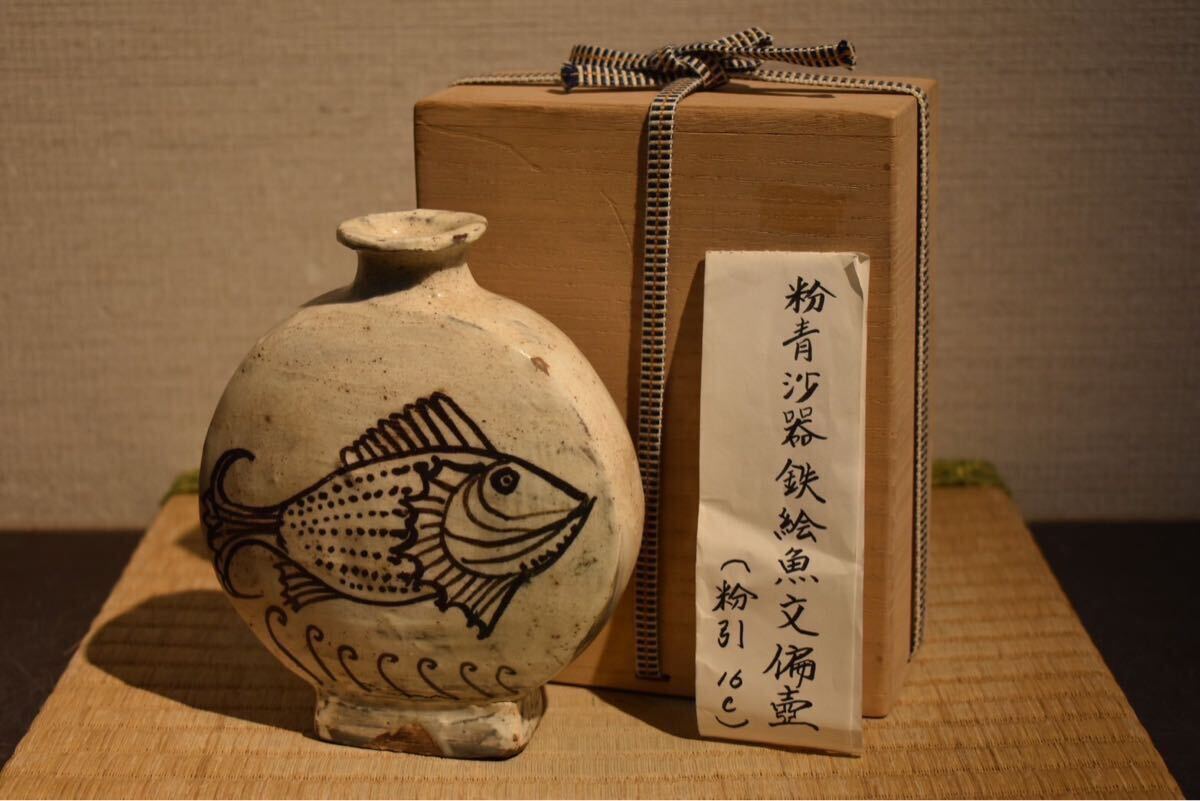 粉青沙器鉄絵魚文偏壺
（粉引 16C）